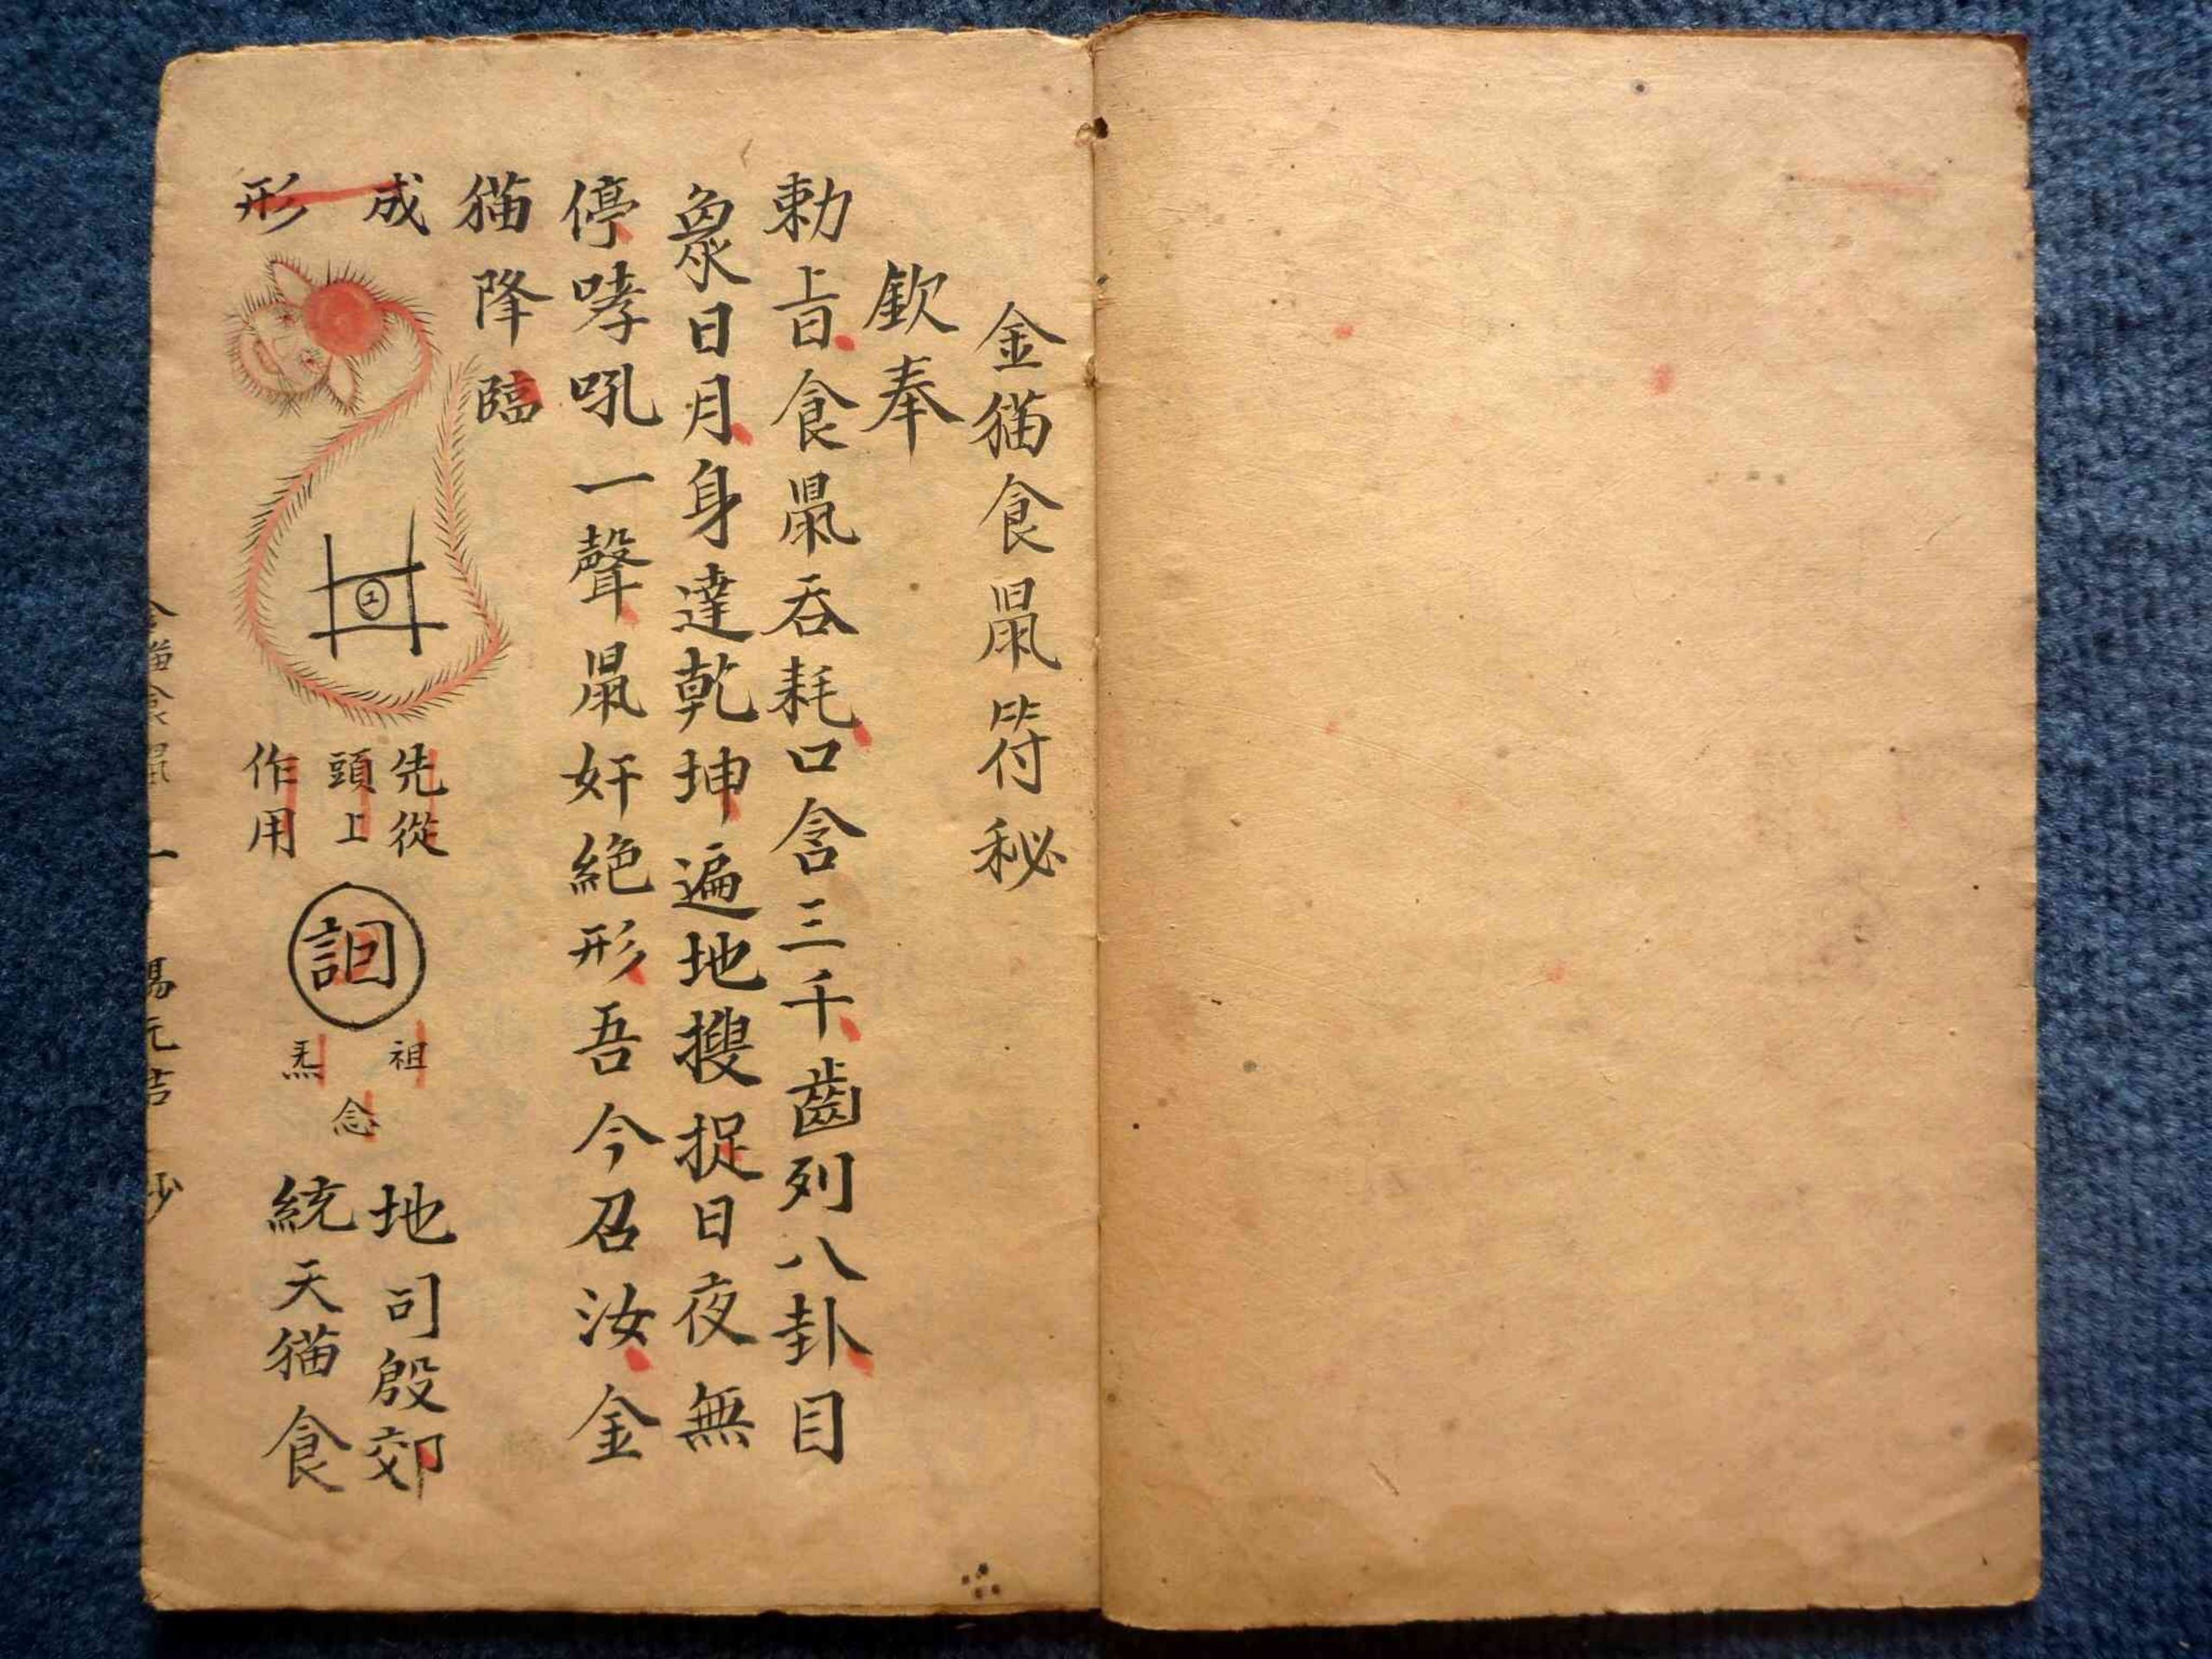 金猫食鼠符秘
欽奉
勅旨食鼠吞耗口含三千齒列八卦目
衆日月身達乾坤遍地搜捉日夜無
停哮吼一聲鼠奸絕形吾今召汝金
猫降臨
成
形
先從
頭上
作用
祖
炁
念
地司殷郊
統天猫食
金猫食鼠 一 馮元吉 抄